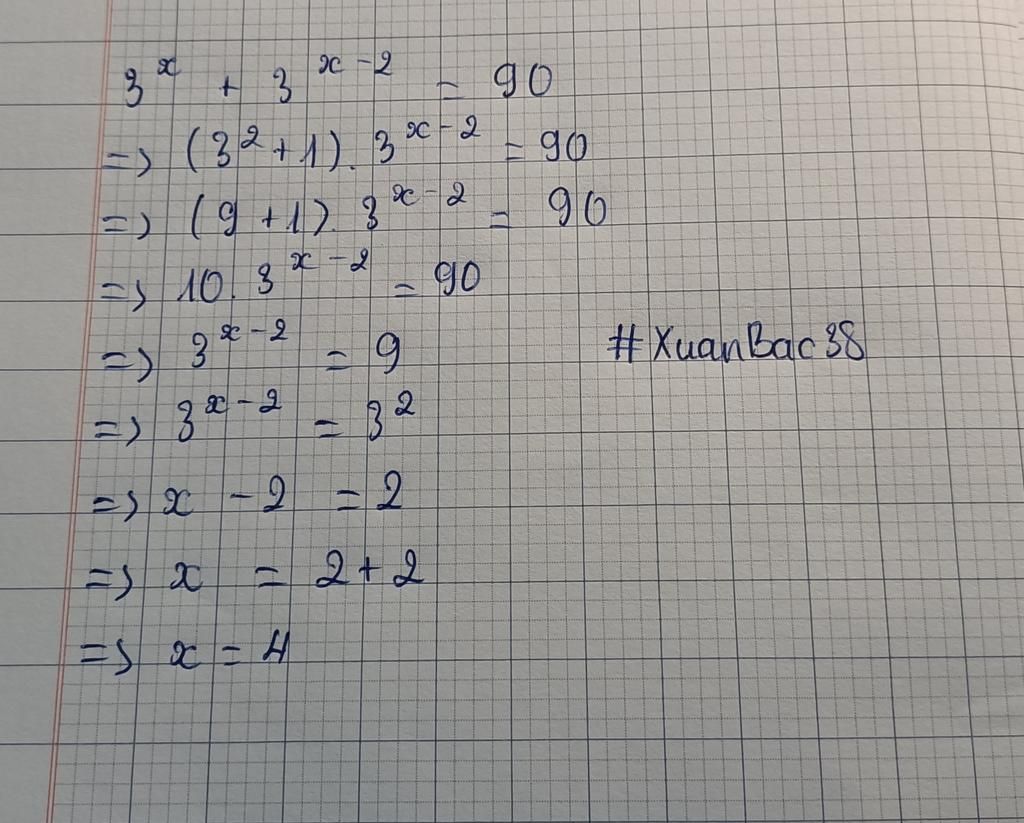 3^x + 3^{x-2} = 90
=> (3^2+1). 3^{x-2} = 90
=> (9+1). 3^{x-2} = 90
=> 10. 3^{x-2} = 90
=> 3^{x-2} = 9
#XuanBac38
=> 3^{x-2} = 3^2
=> x - 2 = 2
=> x = 2+2
=> x = 4